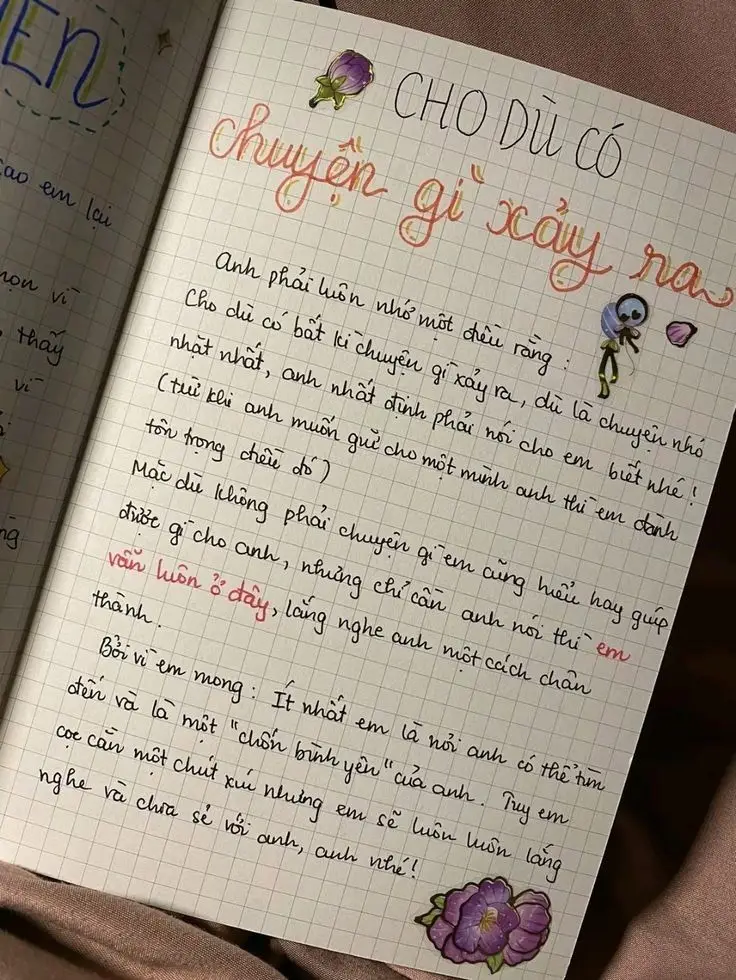 EN
ao em lại
vì
thấy
vì
CHO DÙ CÓ
chuyện gì xảy ra
Anh phải luôn nhớ một điều rằng :
Cho dù có bất kì chuyện gì xảy ra, dù là chuyện nhỏ
nhặt nhất, anh nhất định phải nói cho em biết nhé!
(trừ khi anh muốn giữ cho một mình anh thì em đành
tôn trọng điều đó)
Mặc dù không phải chuyện gì em cũng hiểu hay giúp
được gì cho anh, nhưng chỉ cần anh nói thì em
vẫn luôn ở đây, lắng nghe anh một cách chân
thành.
Bởi vì em mong : Ít nhất em là nơi anh có thể tìm
đến và là một "chốn bình yên" của anh. Tuy em
cọc cằn một chút xíu nhưng em sẽ luôn luôn lắng
nghe và chia sẻ với anh, anh nhé!